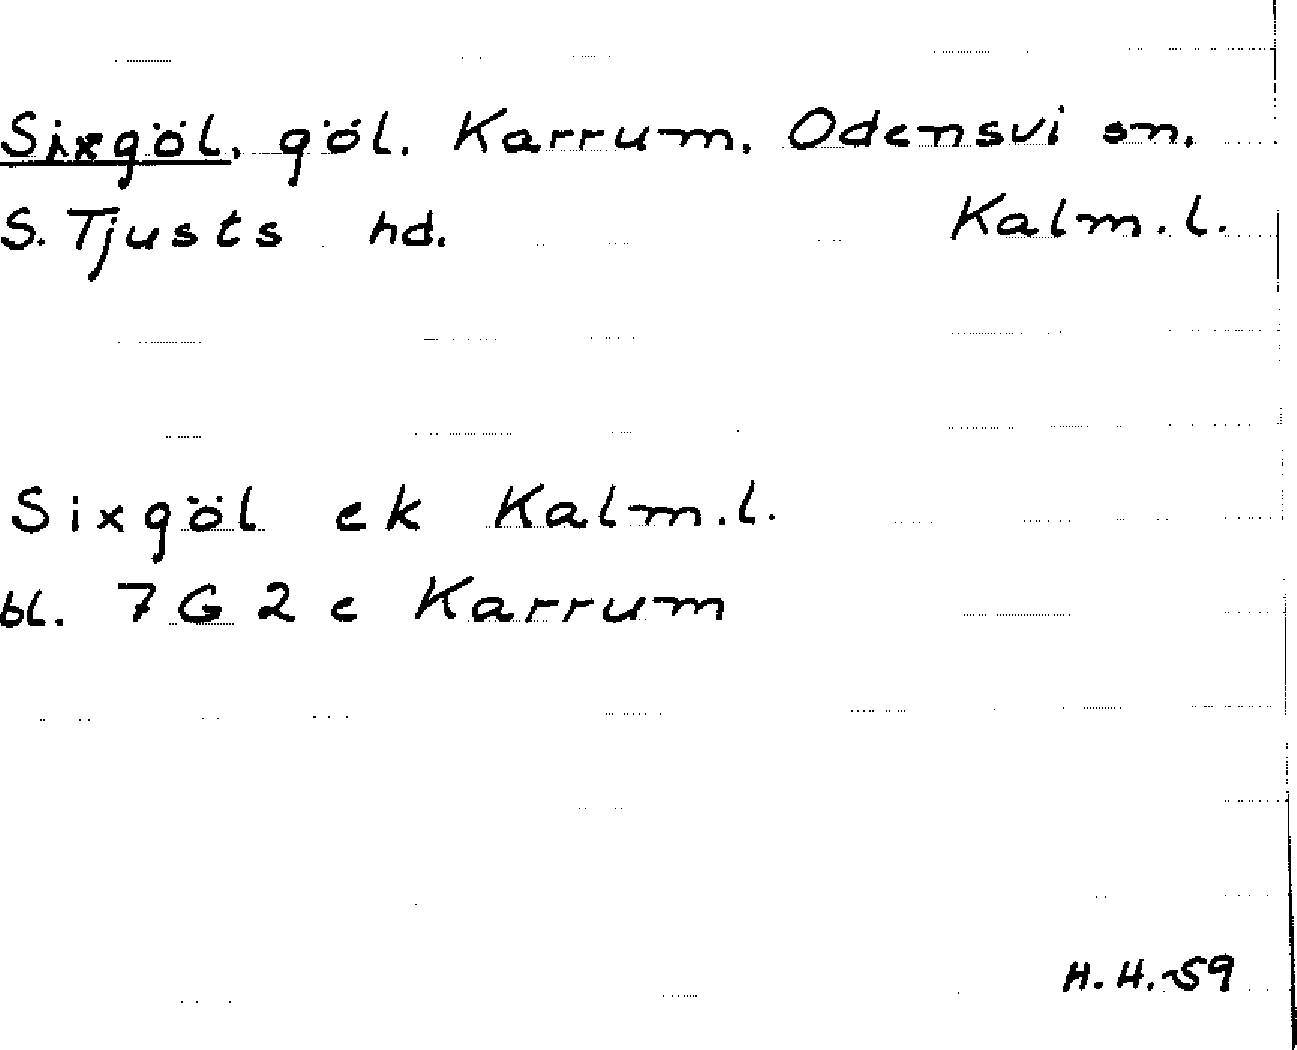 Sixgöl, göl. Karrum. Odensvi sn.
S. Tjusts hd. Kalm.l.
Sixgöl ek Kalm.l.
bl. 7G2c Karrum
H.H.-59